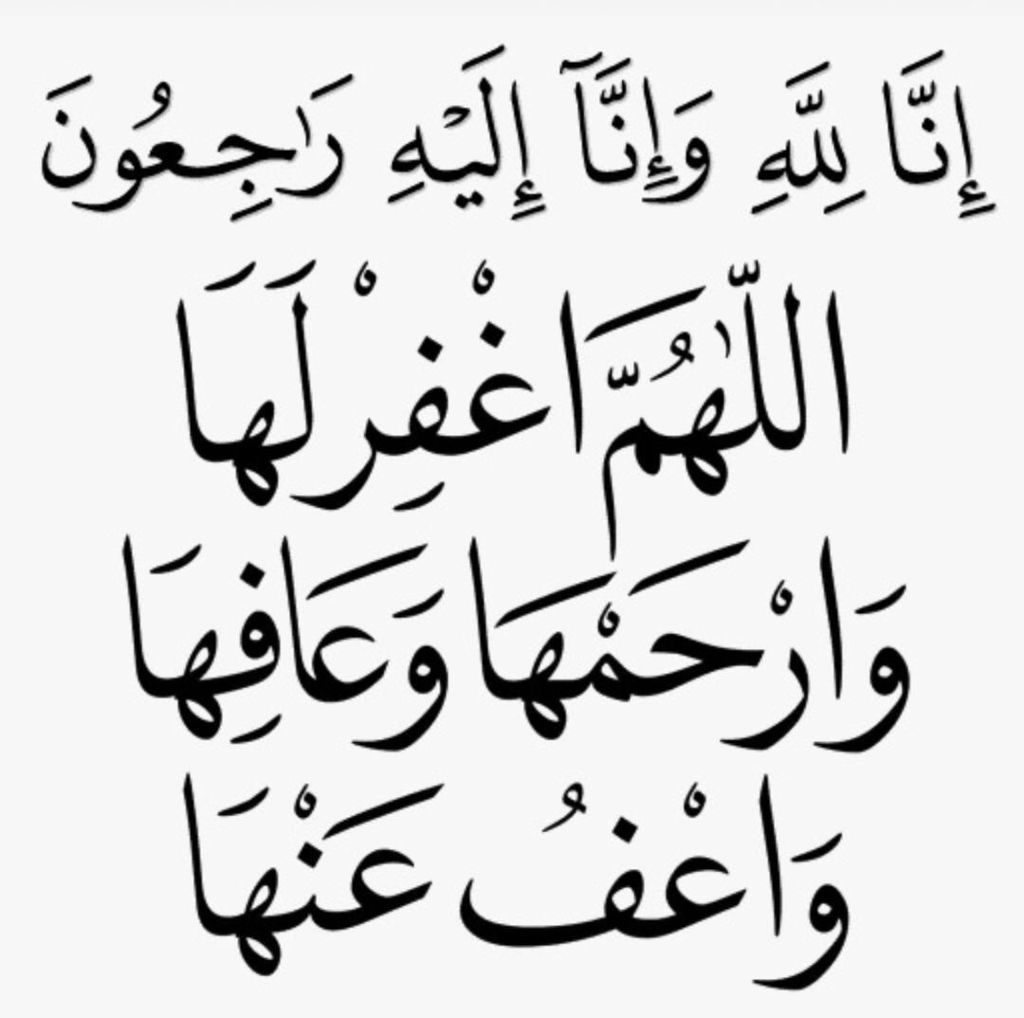 إِنَّا لِلَّهِ وَإِنَّآ إِلَيْهِ رَٰجِعُونَ
اللّٰهُمَّ اغْفِرْ لَهَا
وَارْحَمْهَا وَعَافِهَا
وَاعْفُ عَنْهَا